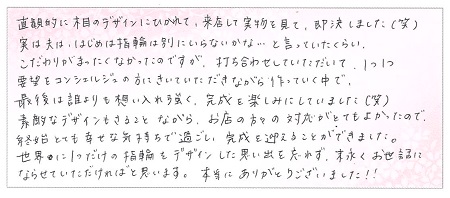 直観的に木目のデザインにひかれて、来店して実物を見て、即決しました(笑)
実は夫は、はじめは指輪は別にいらないかな…と言っていたくらい、
こだわりがまったくなかったのですが、打ち合わせしていただいて、1つ1つ
要望をコンシェルジュの方にきいていただきながら作っていく中で、
最後は誰よりも想い入れ強く、完成を楽しみにしていました(笑)
素敵なデザインもさること ながら、お店の方々の対応がとてもよかったので、
終始とても幸せな気持ちで過ごし、完成を迎えることができました。
世界に1つだけの指輪をデザインした思い出を忘れず、末永くお世話に
ならせていただければと思います。本当にありがとうございました!!